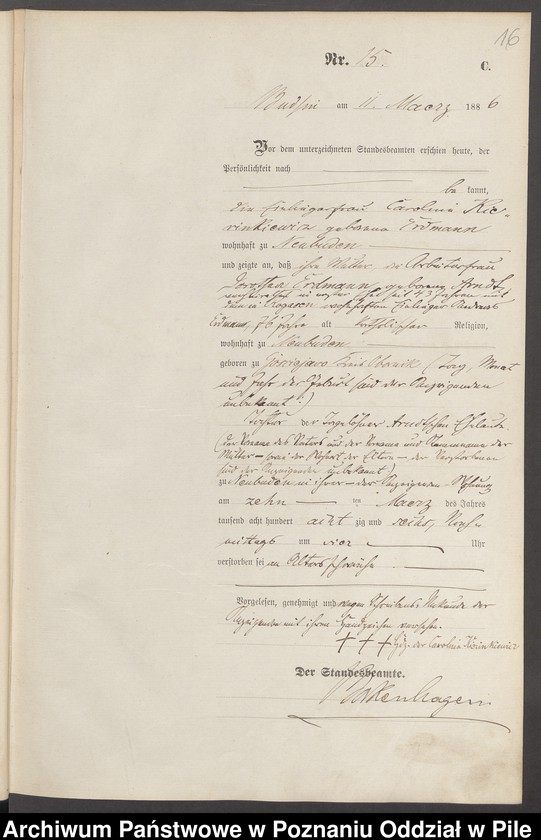 16
Nr. 15.
C.
Budsin am 11. Maerz 1886
Vor dem unterzeichneten Standesbeamten erschien heute, der
Persönlichkeit nach
be kannt,
die Einliegerfrau Caroline Kie-
rinkiewicz geborene Erdmann
wohnhaft zu Neubuden
und zeigte an, daß ihre Mutter, die Arbeiterfrau
Dorothea Erdmann, geborene Arndt,
verheirathet in erster Ehe seit 43 Jahren mit
dem in Rogasen wohnhaften Einlieger Andreas
Erdmann, 76 Jahre alt katholischer Religion,
wohnhaft zu Neubuden
geboren zu Gosciejewo Kreis Obornik (Tag, Monat
und Jahr der Geburt sind der Anzeigenden
unbekannt!)
Tochter der Tagelöhner Arndtschen Eheleute
(der Vorname des Vaters und der Vorname und Stammname der
Mutter – sowie der Wohnort der Eltern – der Verstorbenen
sind der Anzeigenden unbekannt!)
zu Neubuden in ihrer – der Anzeigenden – Wohnung
am zehn ten Maerz des Jahres
tausend acht hundert acht zig und sechs, Nach-
mittags um vier Uhr
verstorben sei, an Altersschwäche.
Vorgelesen, genehmigt und wegen Schreibens Unkunde der
Anzeigenden mit ihrem Handzeichen versehen.
+++ Hdz. der Caroline Kierinkiewicz
Der Standesbeamte.
Archiwum Państwowe w Poznaniu Oddział w Pile